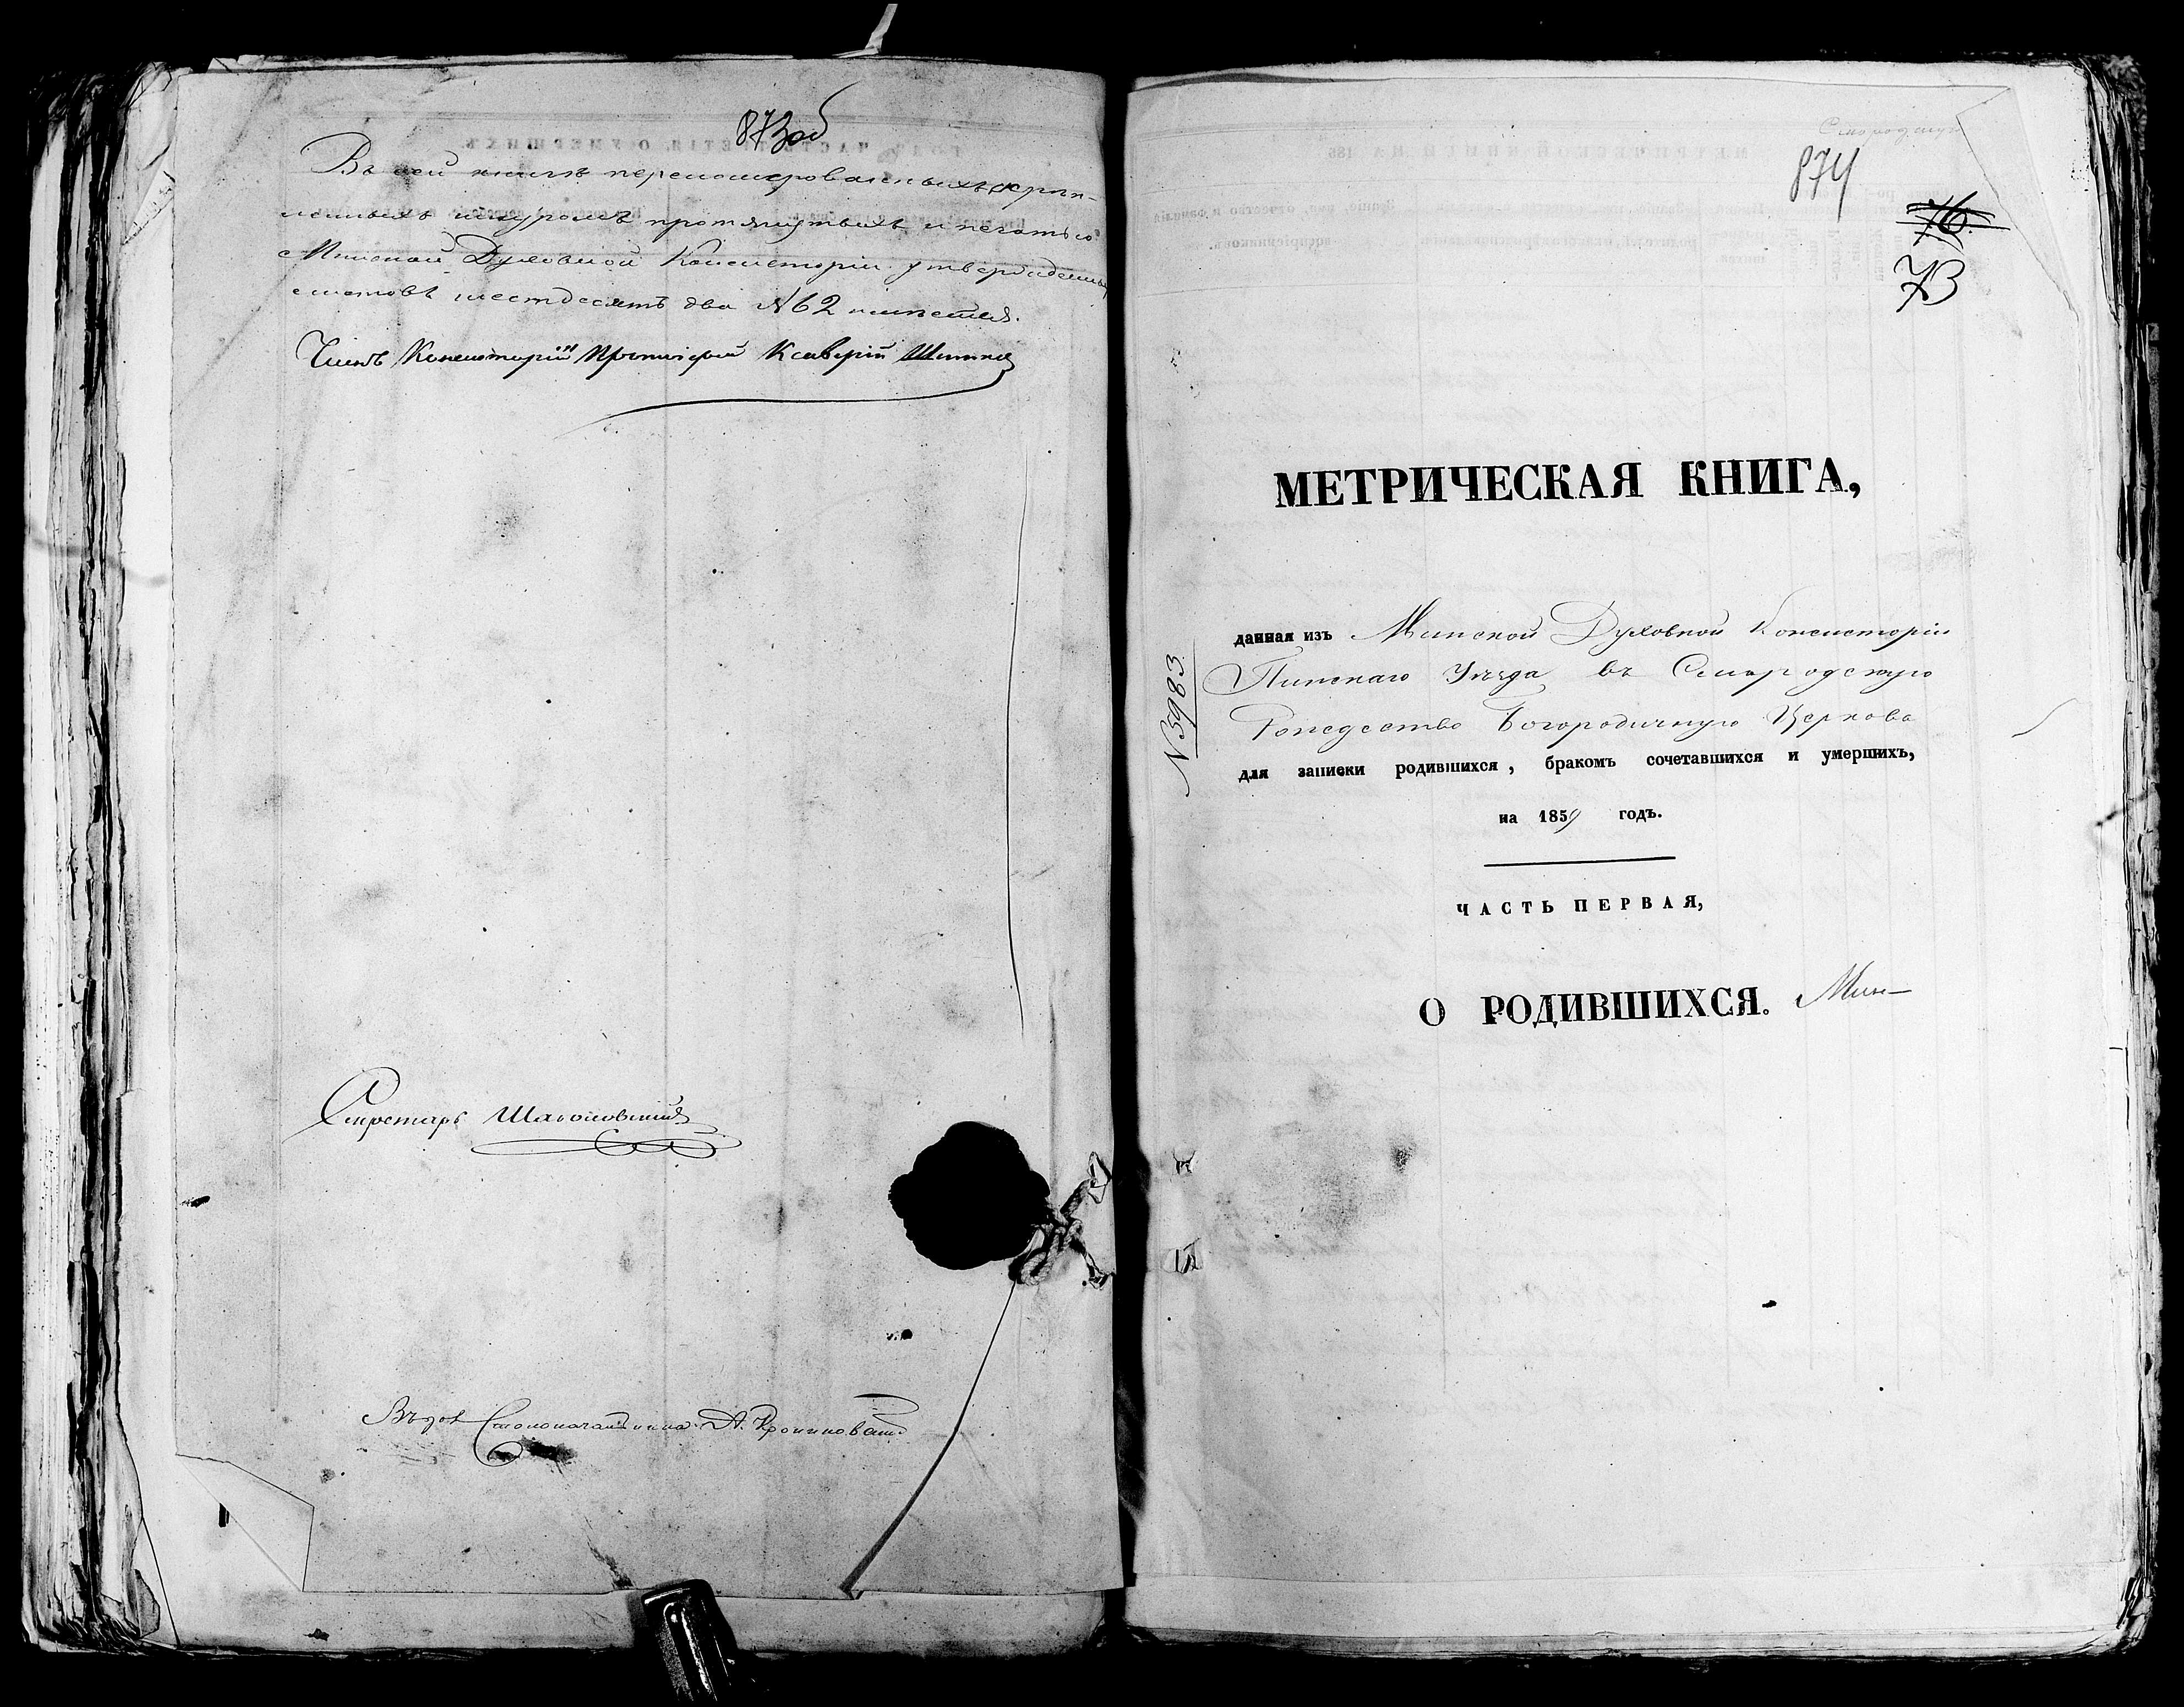 873об
Въ сей книгѣ перенумерованныхъ скрѣп-
ленныхъ шнуромъ протянутыхъ и печатью
Минской Духовной Консисторіи утвержденныхъ
листовъ шестдесятъ два №62 имѣется.
Членъ Консисторіи Протоіерей Ксаверій
Секретарь
Столоначальника А.
874
76
73
МЕТРИЧЕСКАЯ КНИГА,
данная изъ Минской Духовной Консисторіи
Пинскаго Уѣзда въ Смородскую
Рождество Богородичную Церковь
для записки родившихся, бракомъ сочетавшихся и умершихъ,
на 1859 годъ.
ЧАСТЬ ПЕРВАЯ,
О РОДИВШИХСЯ. Мин
№5983